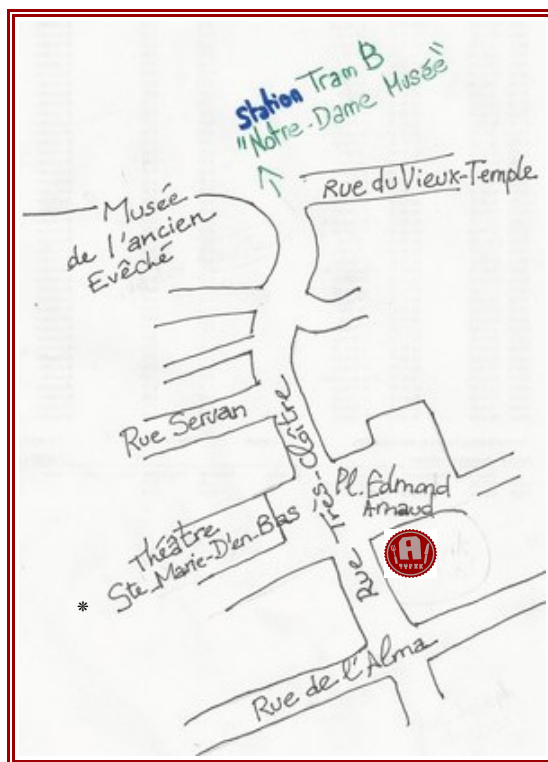 Station Tram B
"Notre-Dame Musée"
Rue du Vieux-Temple
Musée
de l'ancien
Evêché
Rue Servan
Rue Très-Cloître
Pl. Edmond
Arnaud
A
Théâtre
Ste-Marie-D'en-Bas
*
Rue de l'Alma